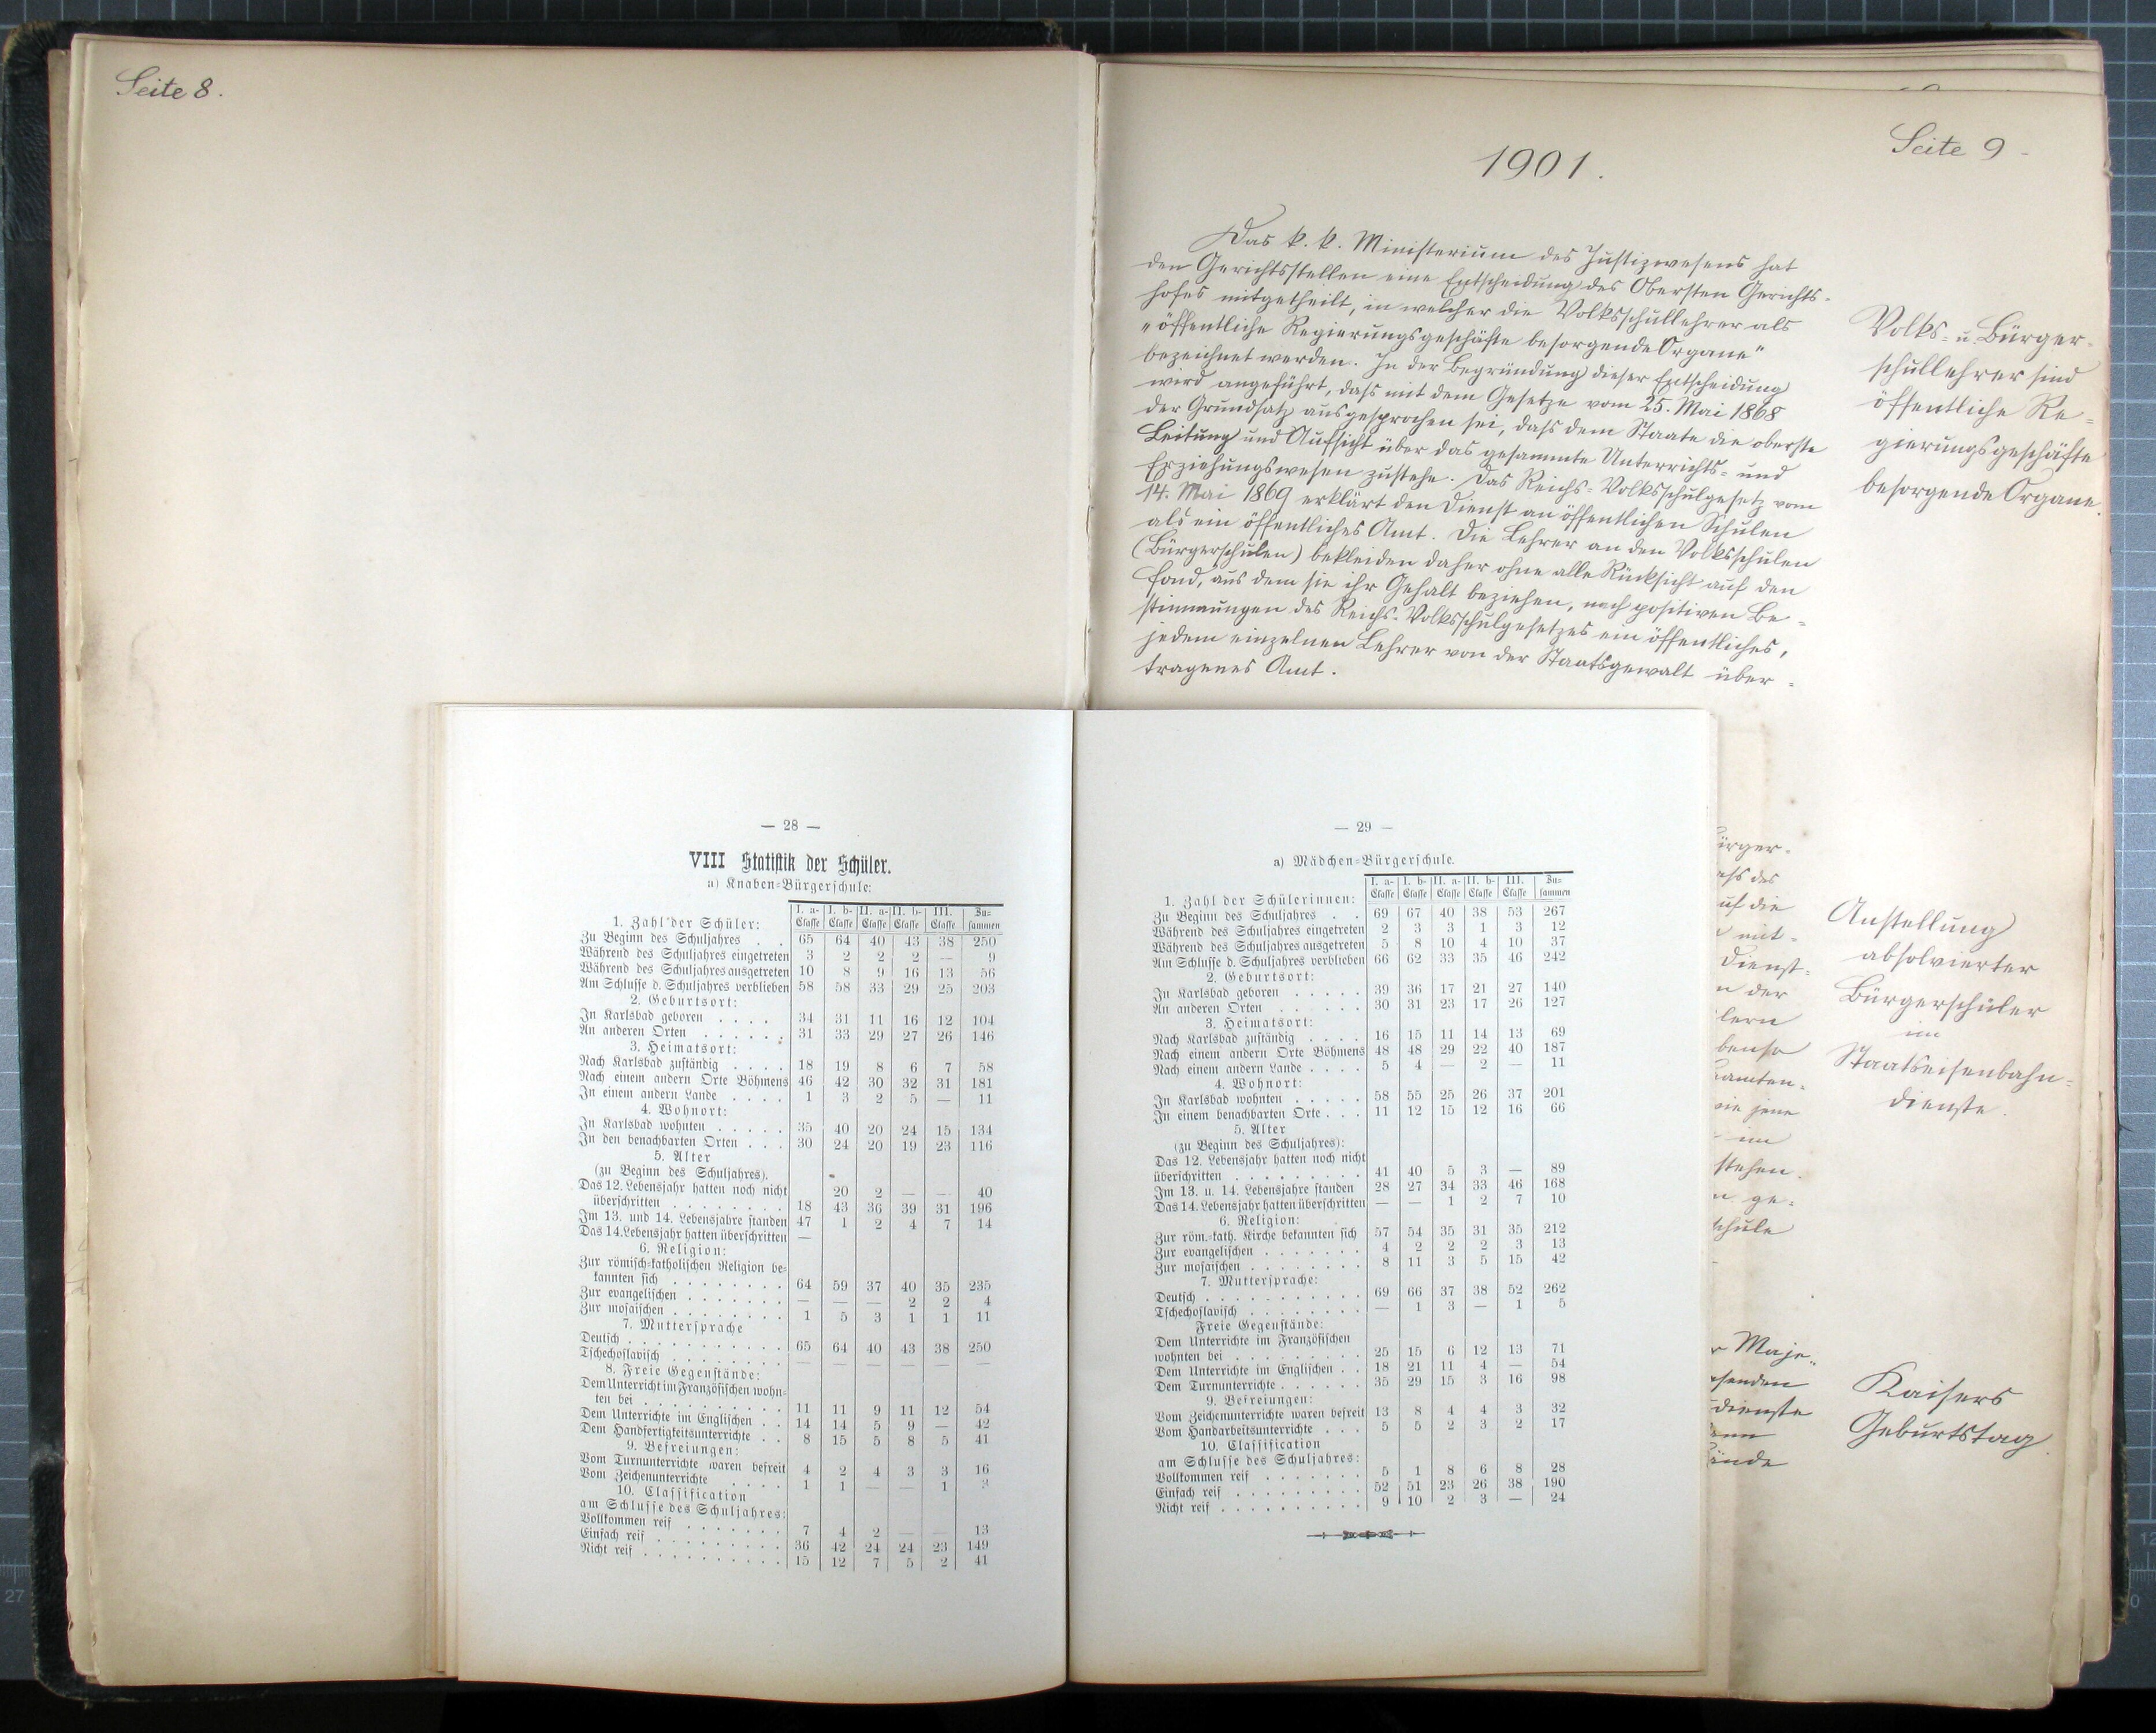 Seite 8.
Seite 9
1901.
Das k. k. Ministerium des Justizwesens hat
den Gerichtsstellen eine Entscheidung des Obersten Gerichts-
hofes mitgetheilt, in welcher die Volksschullehrer als
"öffentliche Regierungsgeschäfte besorgende Organe"
bezeichnet werden. In der Begründung dieser Entscheidung
wird angeführt, dass mit dem Gesetze vom 25. Mai 1868
der Grundsatz ausgesprochen sei, dass dem Staate die oberste
Leitung und Aufsicht über das gesammte Unterrichts- und
Erziehungswesen zustehe. Das Reichs-Volksschulgesetz vom
14. Mai 1869 erklärt den Dienst an öffentlichen Schulen
als ein öffentliches Amt. Die Lehrer an den Volksschulen
(Bürgerschulen) bekleiden daher ohne alle Rücksicht auf den
Fond, aus dem sie ihr Gehalt beziehen, nach positiven Be-
stimmungen des Reichs-Volksschulgesetzes ein öffentliches,
jedem einzelnen Lehrer von der Staatsgewalt über-
tragenes Amt.
Volks- u. Bürger-
schullehrer sind
öffentliche Re-
gierungsgeschäfte
besorgende Organe.
Anstellung
absolvierter
Bürgerschüler
im
Staatseisenbahn-
dienste.
Kaisers
Geburtstag.
— 28 —
VIII Statistik der Schüler.
a) Knaben-Bürgerschule:
I. a- Classe I. b- Classe II. a- Classe II. b- Classe III. Classe Zu- sammen
1. Zahl der Schüler:
Zu Beginn des Schuljahres . . 65 64 40 43 38 250
Während des Schuljahres eingetreten 3 2 2 2 — 9
Während des Schuljahres ausgetreten 10 8 9 16 13 56
Am Schlusse d. Schuljahres verblieben 58 58 33 29 25 203
2. Geburtsort:
In Karlsbad geboren . . . . 34 31 11 16 12 104
An anderen Orten . . . . . 31 33 29 27 26 146
3. Heimatsort:
Nach Karlsbad zuständig . . . . 18 19 8 6 7 58
Nach einem andern Orte Böhmens 46 42 30 32 31 181
In einem andern Lande . . . . 1 3 2 5 — 11
4. Wohnort:
In Karlsbad wohnten . . . . . 35 40 20 24 15 134
In den benachbarten Orten . . . 30 24 20 19 23 116
5. Alter
(zu Beginn des Schuljahres).
Das 12. Lebensjahr hatten noch nicht
überschritten . . . . . . . . 18 20 2 — — 40
Im 13. und 14. Lebensjahre standen 47 43 36 39 31 196
Das 14. Lebensjahr hatten überschritten — 1 2 4 7 14
6. Religion:
Zur römisch-katholischen Religion be-
kannten sich . . . . . . . . 64 59 37 40 35 235
Zur evangelischen . . . . . . . — — — 2 2 4
Zur mosaischen . . . . . . . . 1 5 3 1 1 11
7. Muttersprache
Deutsch . . . . . . . . . . 65 64 40 43 38 250
Tschechoslavisch . . . . . . . — — — — — —
8. Freie Gegenstände:
Dem Unterricht im Französischen wohn-
ten bei . . . . . . . . . . 11 11 9 11 12 54
Dem Unterrichte im Englischen . . 14 14 5 9 — 42
Dem Handfertigkeitsunterrichte . . 8 15 5 8 5 41
9. Befreiungen:
Vom Turnunterrichte waren befreit 4 2 4 3 3 16
Vom Zeichenunterrichte . . . . 1 1 — — 1 3
10. Classification
am Schlusse des Schuljahres:
Vollkommen reif . . . . . . . 7 4 2 — — 13
Einfach reif . . . . . . . . . 36 42 24 24 23 149
Nicht reif . . . . . . . . . . 15 12 7 5 2 41
— 29 —
a) Mädchen-Bürgerschule.
I. a- Classe I. b- Classe II. a- Classe II. b- Classe III. Classe Zu- sammen
1. Zahl der Schülerinnen:
Zu Beginn des Schuljahres . . 69 67 40 38 53 267
Während des Schuljahres eingetreten 2 3 3 1 3 12
Während des Schuljahres ausgetreten 5 8 10 4 10 37
Am Schlusse d. Schuljahres verblieben 66 62 33 35 46 242
2. Geburtsort:
In Karlsbad geboren . . . . . 39 36 17 21 27 140
An anderen Orten . . . . . . 30 31 23 17 26 127
3. Heimatsort:
Nach Karlsbad zuständig . . . . 16 15 11 14 13 69
Nach einem andern Orte Böhmens 48 48 29 22 40 187
Nach einem andern Lande . . . . 5 4 — 2 — 11
4. Wohnort:
In Karlsbad wohnten . . . . . 58 55 25 26 37 201
In einem benachbarten Orte . . . 11 12 15 12 16 66
5. Alter
(zu Beginn des Schuljahres):
Das 12. Lebensjahr hatten noch nicht
überschritten . . . . . . . . . 41 40 5 3 — 89
Im 13. u. 14. Lebensjahre standen 28 27 34 33 46 168
Das 14. Lebensjahr hatten überschritten — — 1 2 7 10
6. Religion:
Zur röm.-kath. Kirche bekannten sich 57 54 35 31 35 212
Zur evangelischen . . . . . . . 4 2 2 2 3 13
Zur mosaischen . . . . . . . . 8 11 3 5 15 42
7. Muttersprache:
Deutsch . . . . . . . . . . . 69 66 37 38 52 262
Tschechoslavisch . . . . . . . . — 1 3 — 1 5
Freie Gegenstände:
Dem Unterrichte im Französischen
wohnten bei . . . . . . . . . 25 15 6 12 13 71
Dem Unterrichte im Englischen . . 18 21 11 4 — 54
Dem Turnunterrichte . . . . . . 35 29 15 3 16 98
9. Befreiungen:
Vom Zeichenunterrichte waren befreit 13 8 4 4 3 32
Vom Handarbeitsunterrichte . . . 5 5 2 3 2 17
10. Classification
am Schlusse des Schuljahres:
Vollkommen reif . . . . . . . 5 1 8 6 8 28
Einfach reif . . . . . . . . . 52 51 23 26 38 190
Nicht reif . . . . . . . . . . 9 10 2 3 — 24